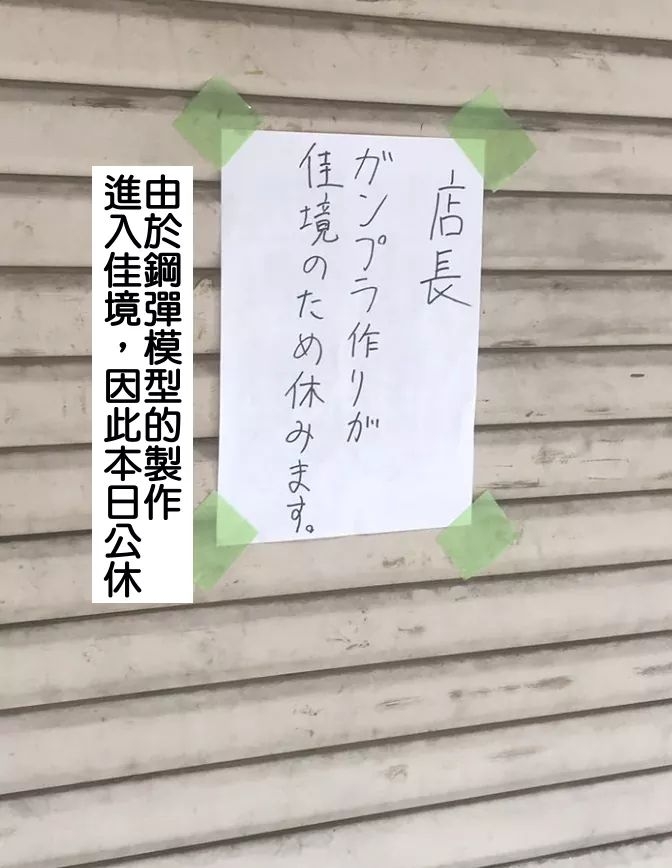 店長
ガンプラ作りが
佳境のため休みます。
由於鋼彈模型的製作
進入佳境，因此本日公休